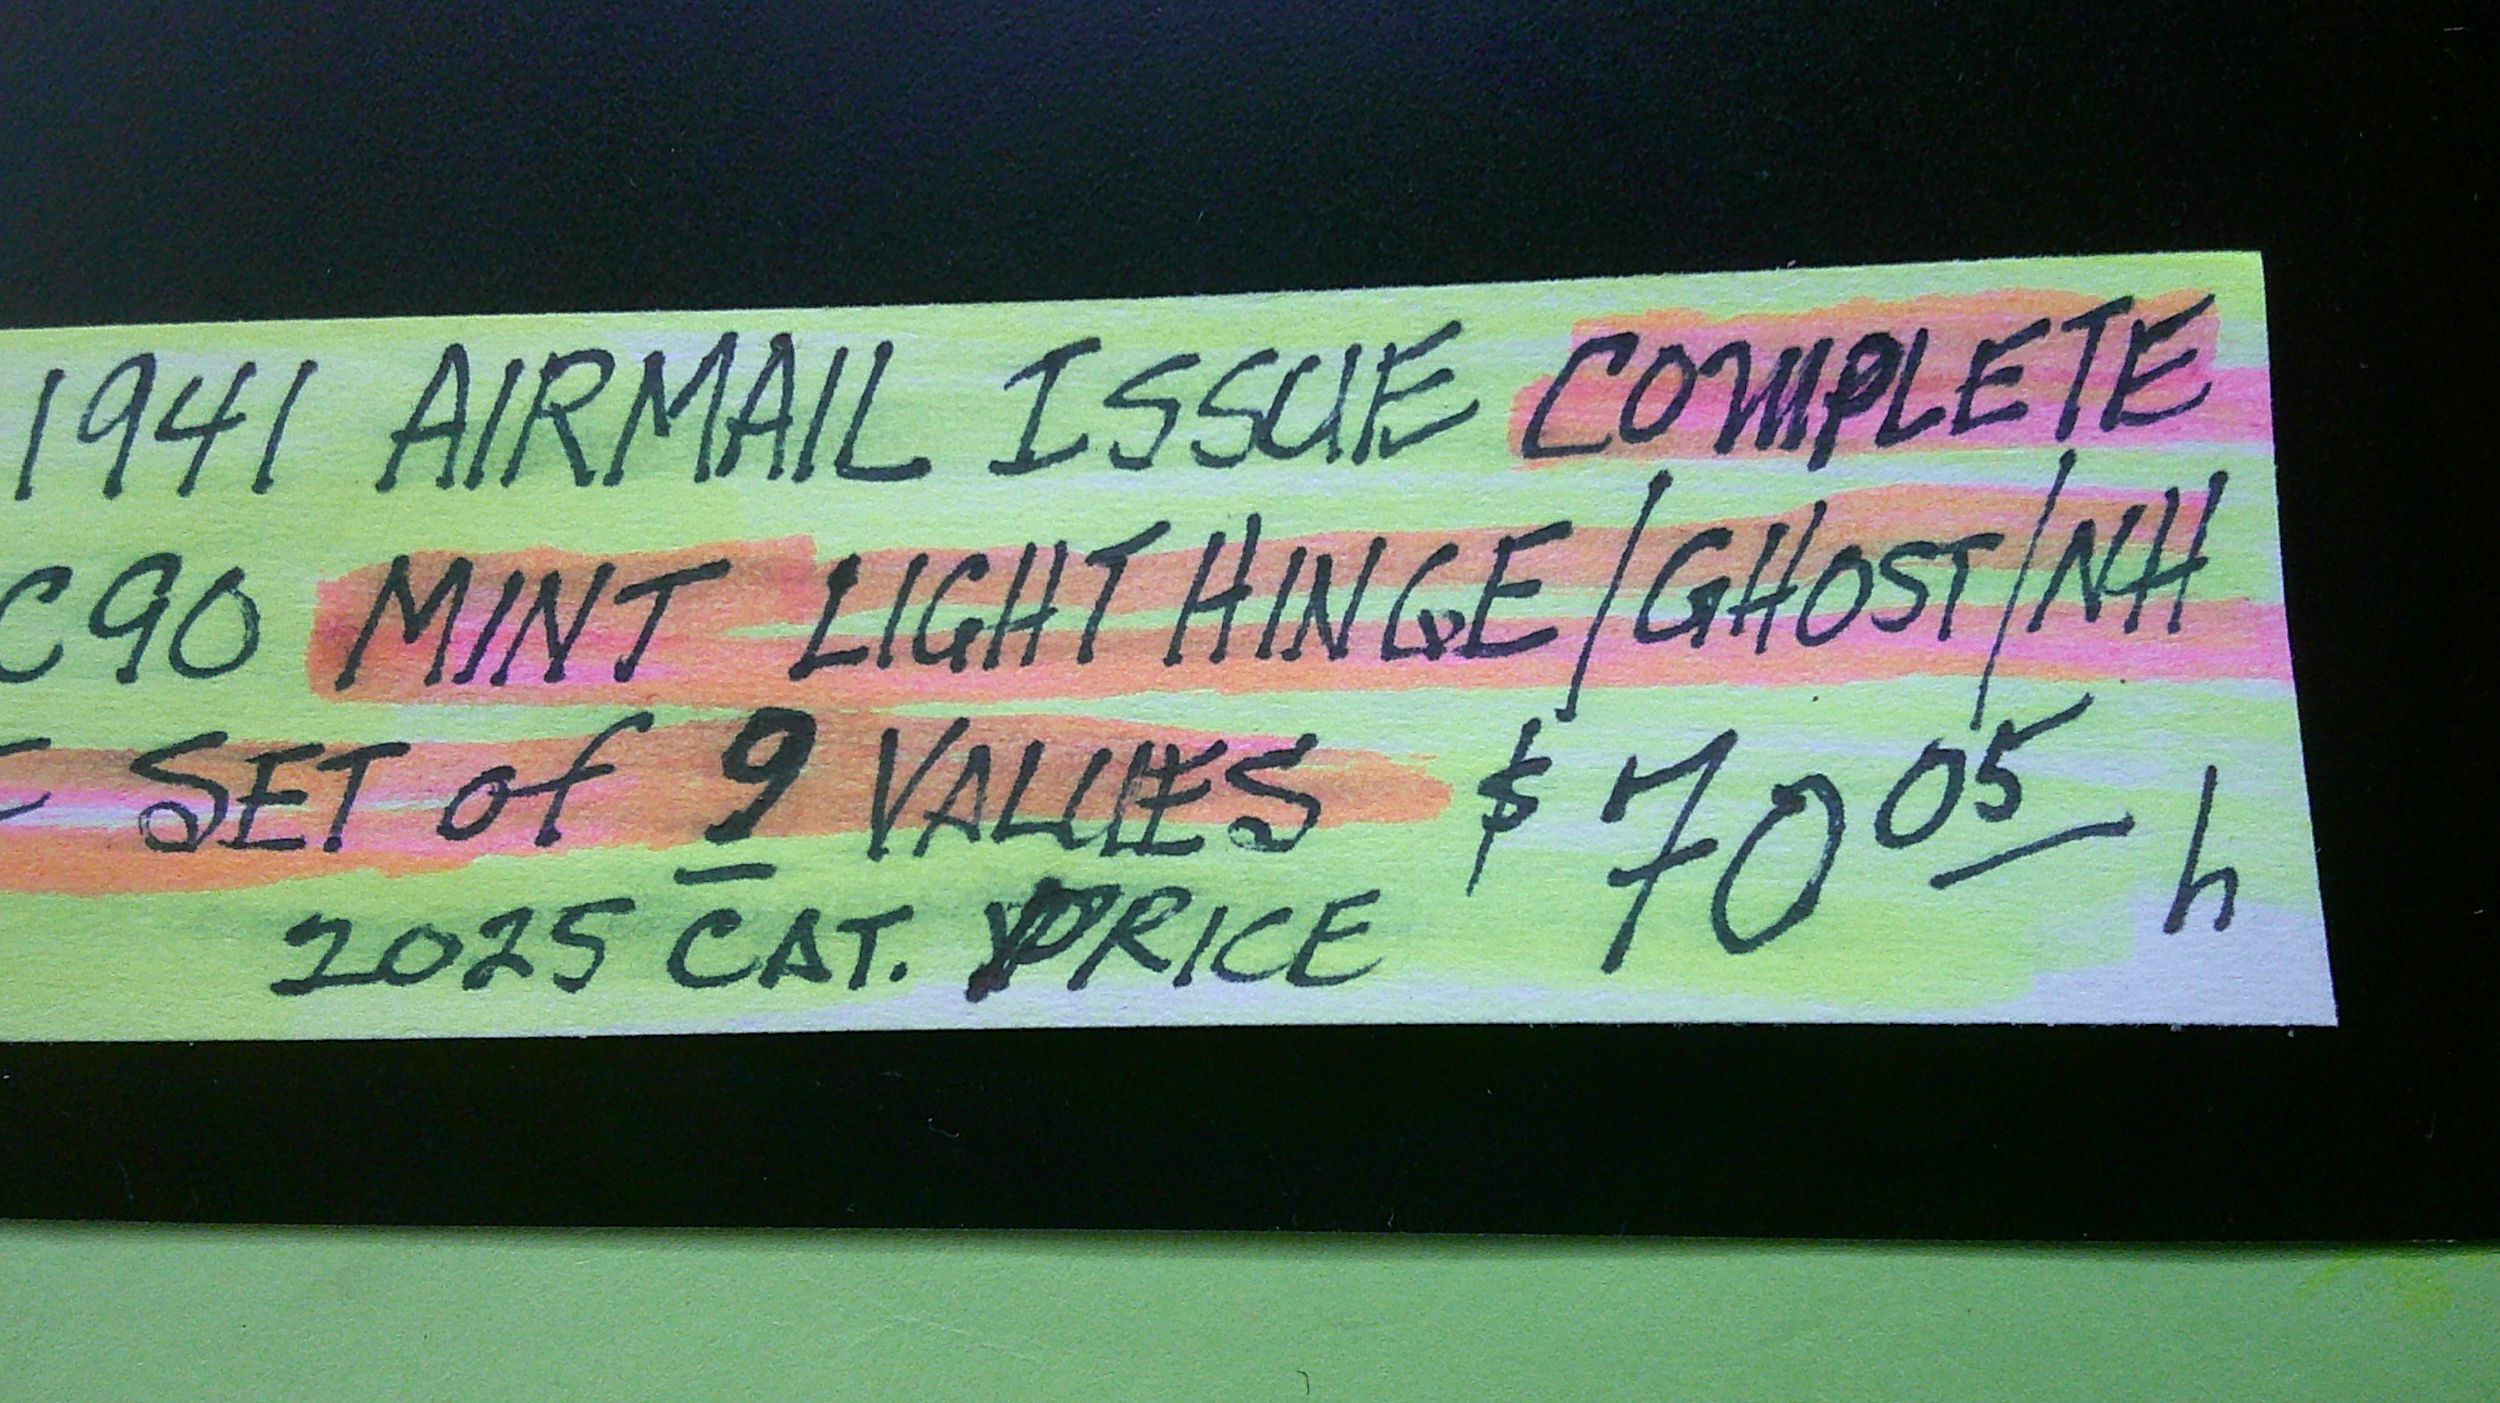 1941 AIRMAIL ISSUE COMPLETE
C90 MINT LIGHT HINGE/GHOST/NH
SET of 9 VALUES $70.05 h
2025 CAT. PRICE